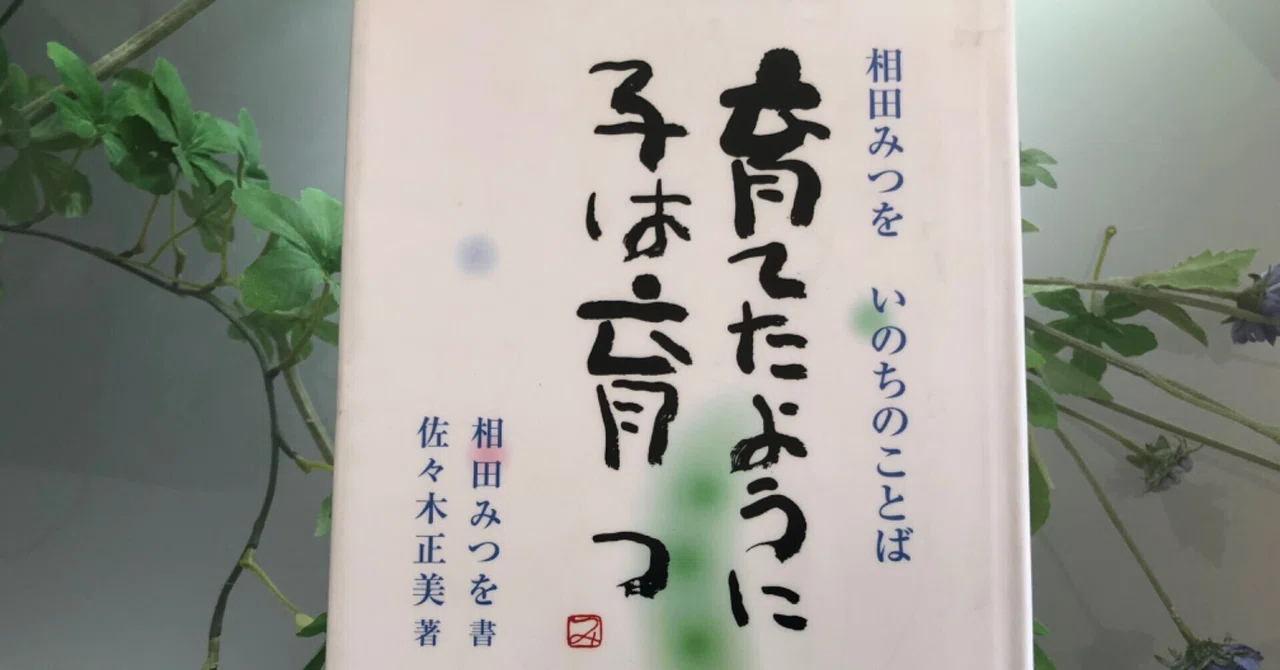 相田みつを　いのちのことば
育てたように
子は育つ
相田みつを 書
佐々木正美 著
み